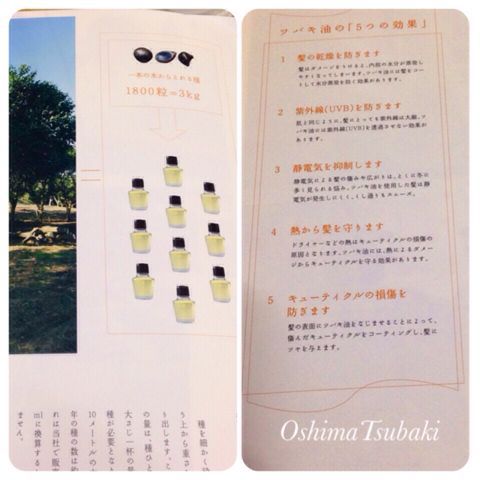 一本の木からとれる種
1800粒=3kg
種を細かく
う上から重さ
り出します。こ
の量は、種ひと
大さじ一杯の量
種が必要となり
10メートルの木
年の種の数は約
れは当社で販売
mlに換算すると
ません。
ツバキ油の「5つの効果」
1 髪の乾燥を防ぎます
髪はダメージをうけると、内部の水分が蒸発し
やすくなってしまいます。ツバキ油には髪をコー
トして水分蒸散を防ぐ効果があります。
2 紫外線(UVB)を防ぎます
肌と同じように、髪にとっても紫外線は大敵。ツ
バキ油には紫外線(UVB)を透過させない効果が
あります。
3 静電気を抑制します
静電気による髪の傷みや広がりは、とくに冬に
多く見られる悩み。ツバキ油を使用した髪は静
電気が発生しにくく、くし通りもスムーズ。
4 熱から髪を守ります
ドライヤーなどの熱はキューティクルの損傷の
原因となります。ツバキ油には、熱によるダメー
ジからキューティクルを守る効果があります。
5 キューティクルの損傷を
防ぎます
髪の表面にツバキ油をなじませることによって、
傷んだキューティクルをコーティングし、髪に
ツヤを与えます。
Oshima Tsubaki